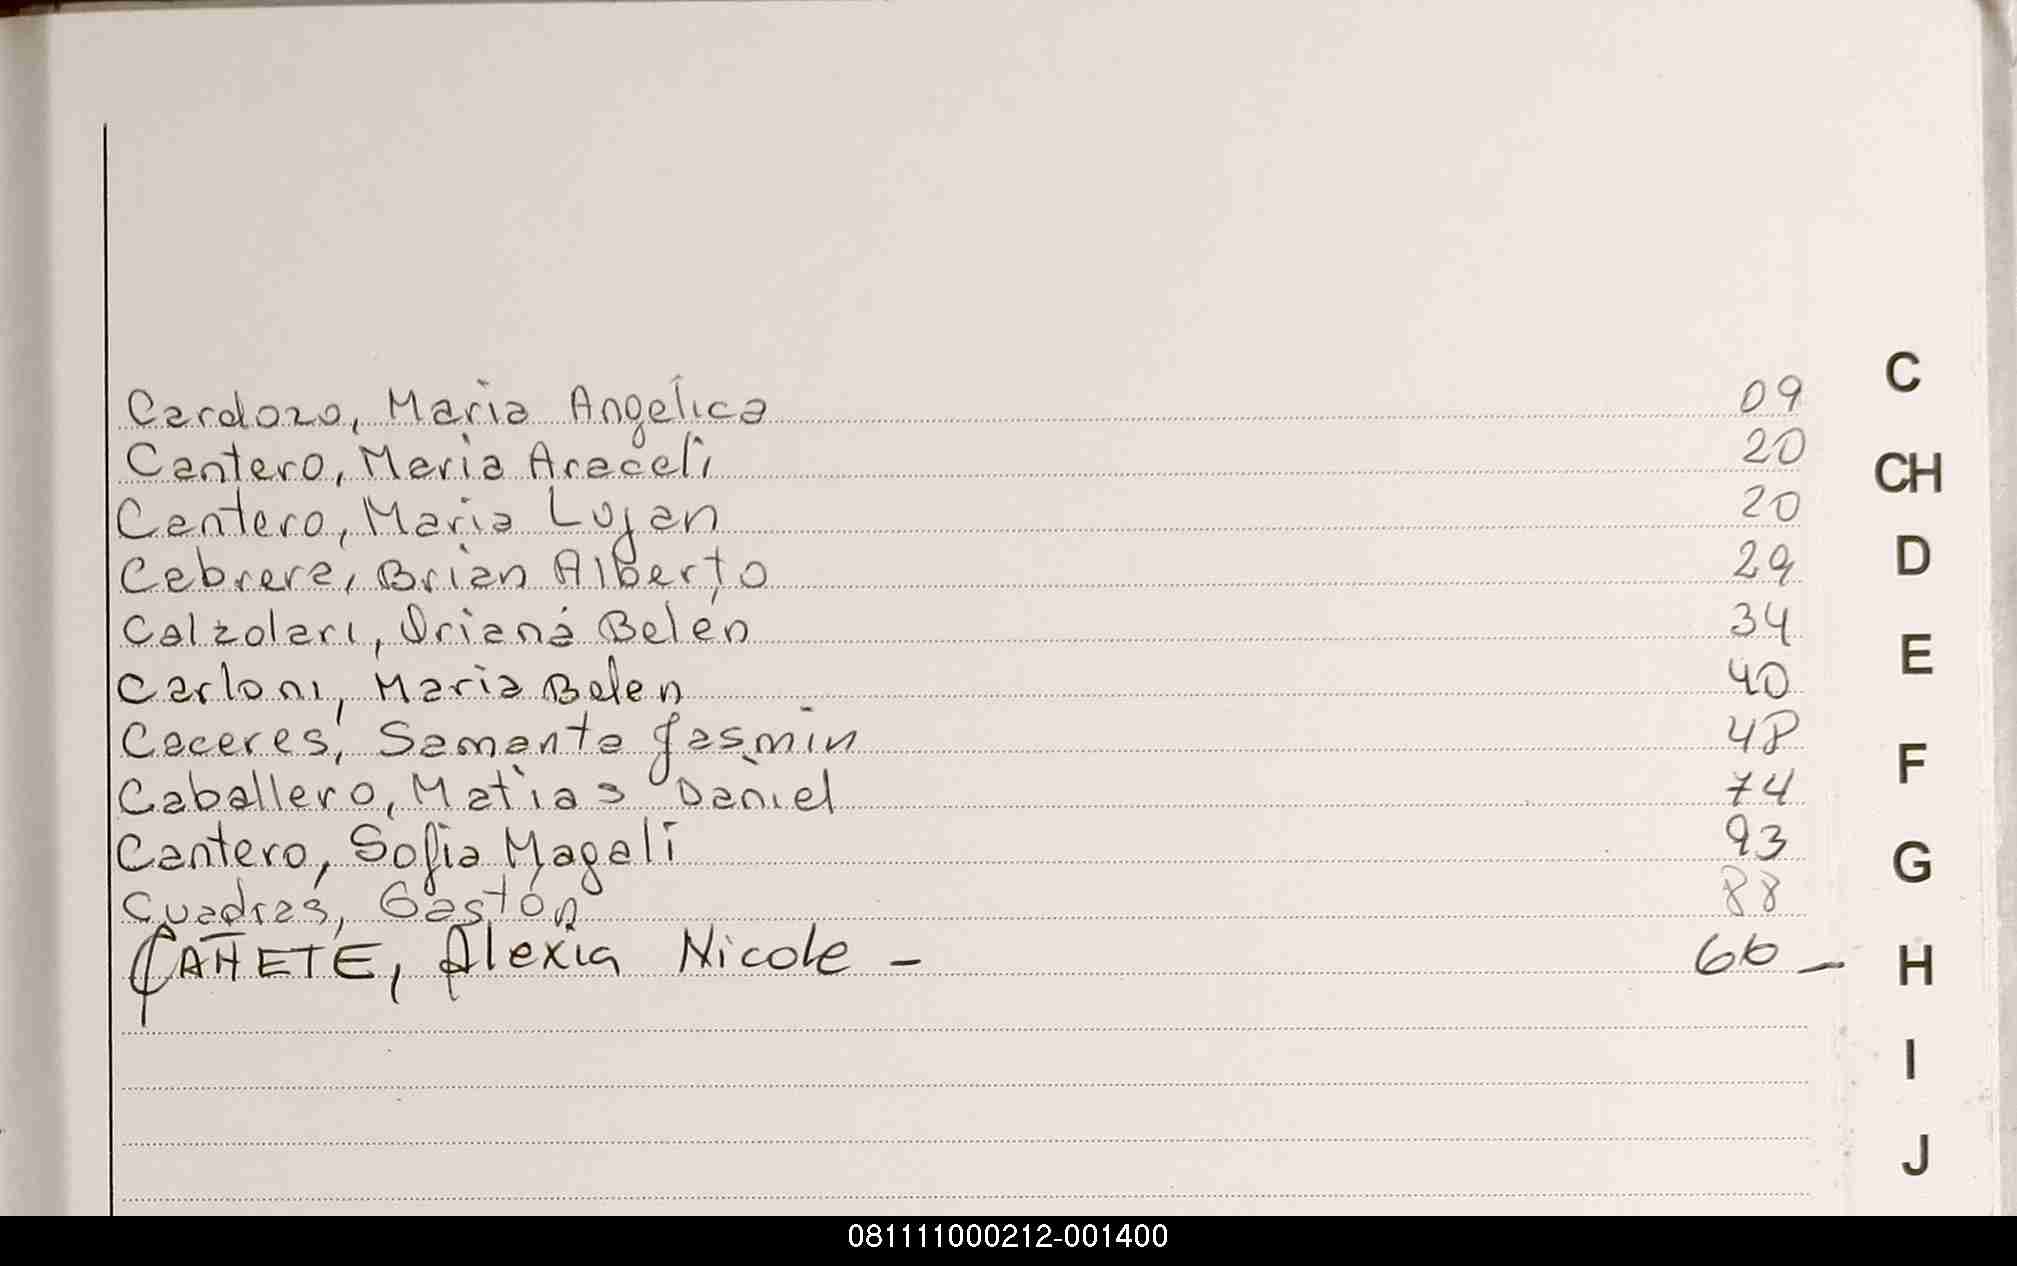 Cardozo, Maria Angélica 09
Cantero, Maria Araceli 20
Cantero, Maria Lujan 20
Cabrera, Brian Alberto 29
Calzolari, Oriana Belén 34
Carloni, Maria Belen 40
Caceres, Samanta Jasmin 48
Caballero, Matias Daniel 74
Cantero, Sofia Magali 93
Cuadras, Gastón 88
CAÑETE, Alexia Nicole - 66 -
C
CH
D
E
F
G
H
I
J
081111000212-001400